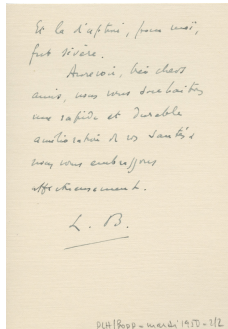 Et la d'aptini, pour moi,
fut sévère.
Aurevoir, très chers
amis, nous vous souhaitons
une rapide et durable
amélioration de vos santés
nous vous embrassons
affectueusement.
L. B.
PLH/BOPP - mardi 1950 - 2/2